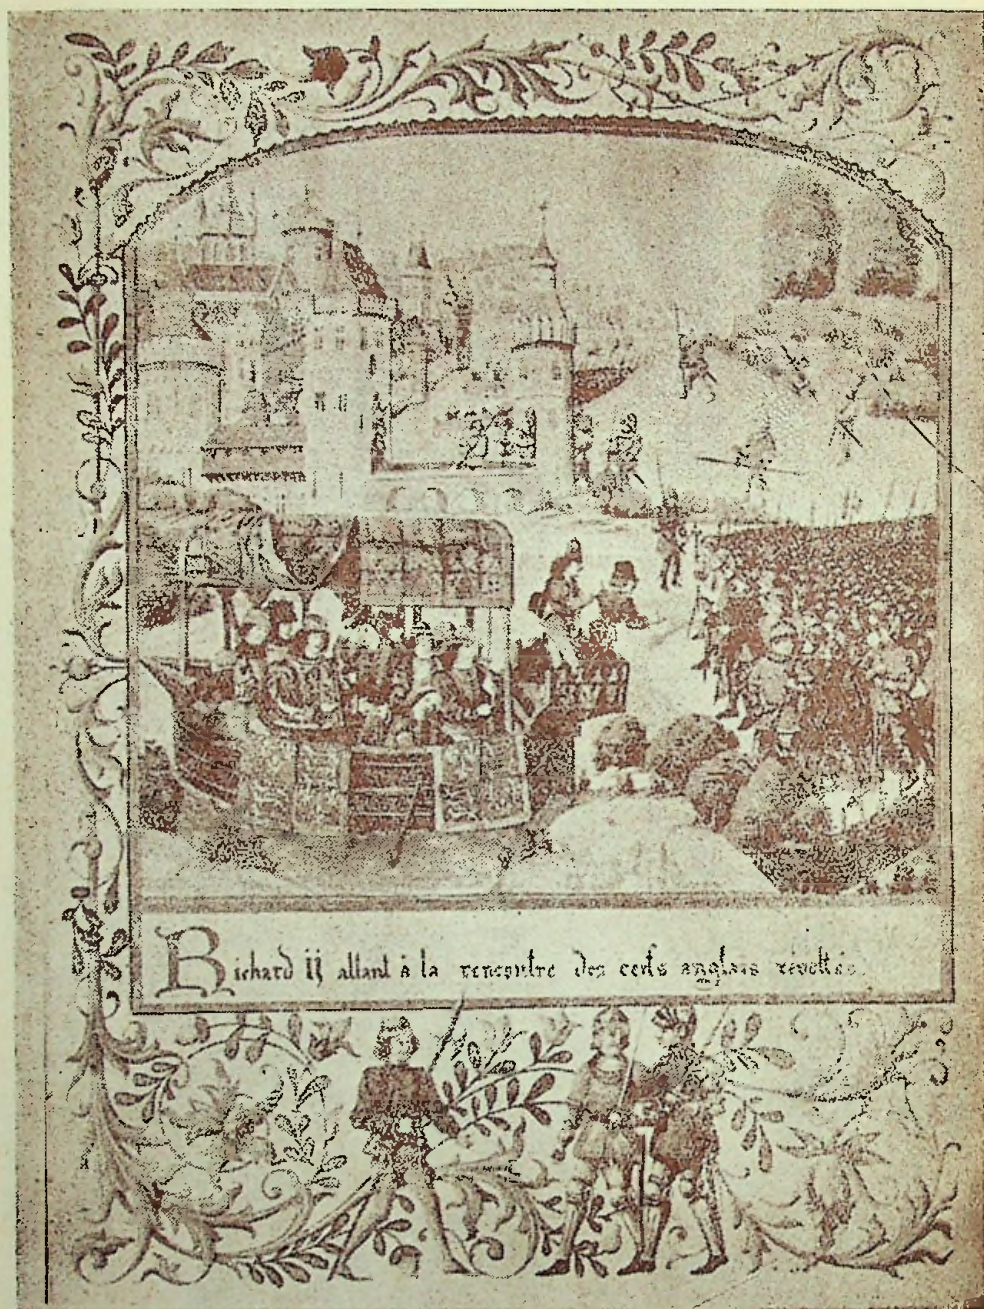 Richard II allant à la rencontre des cerfs anglais révoltés.